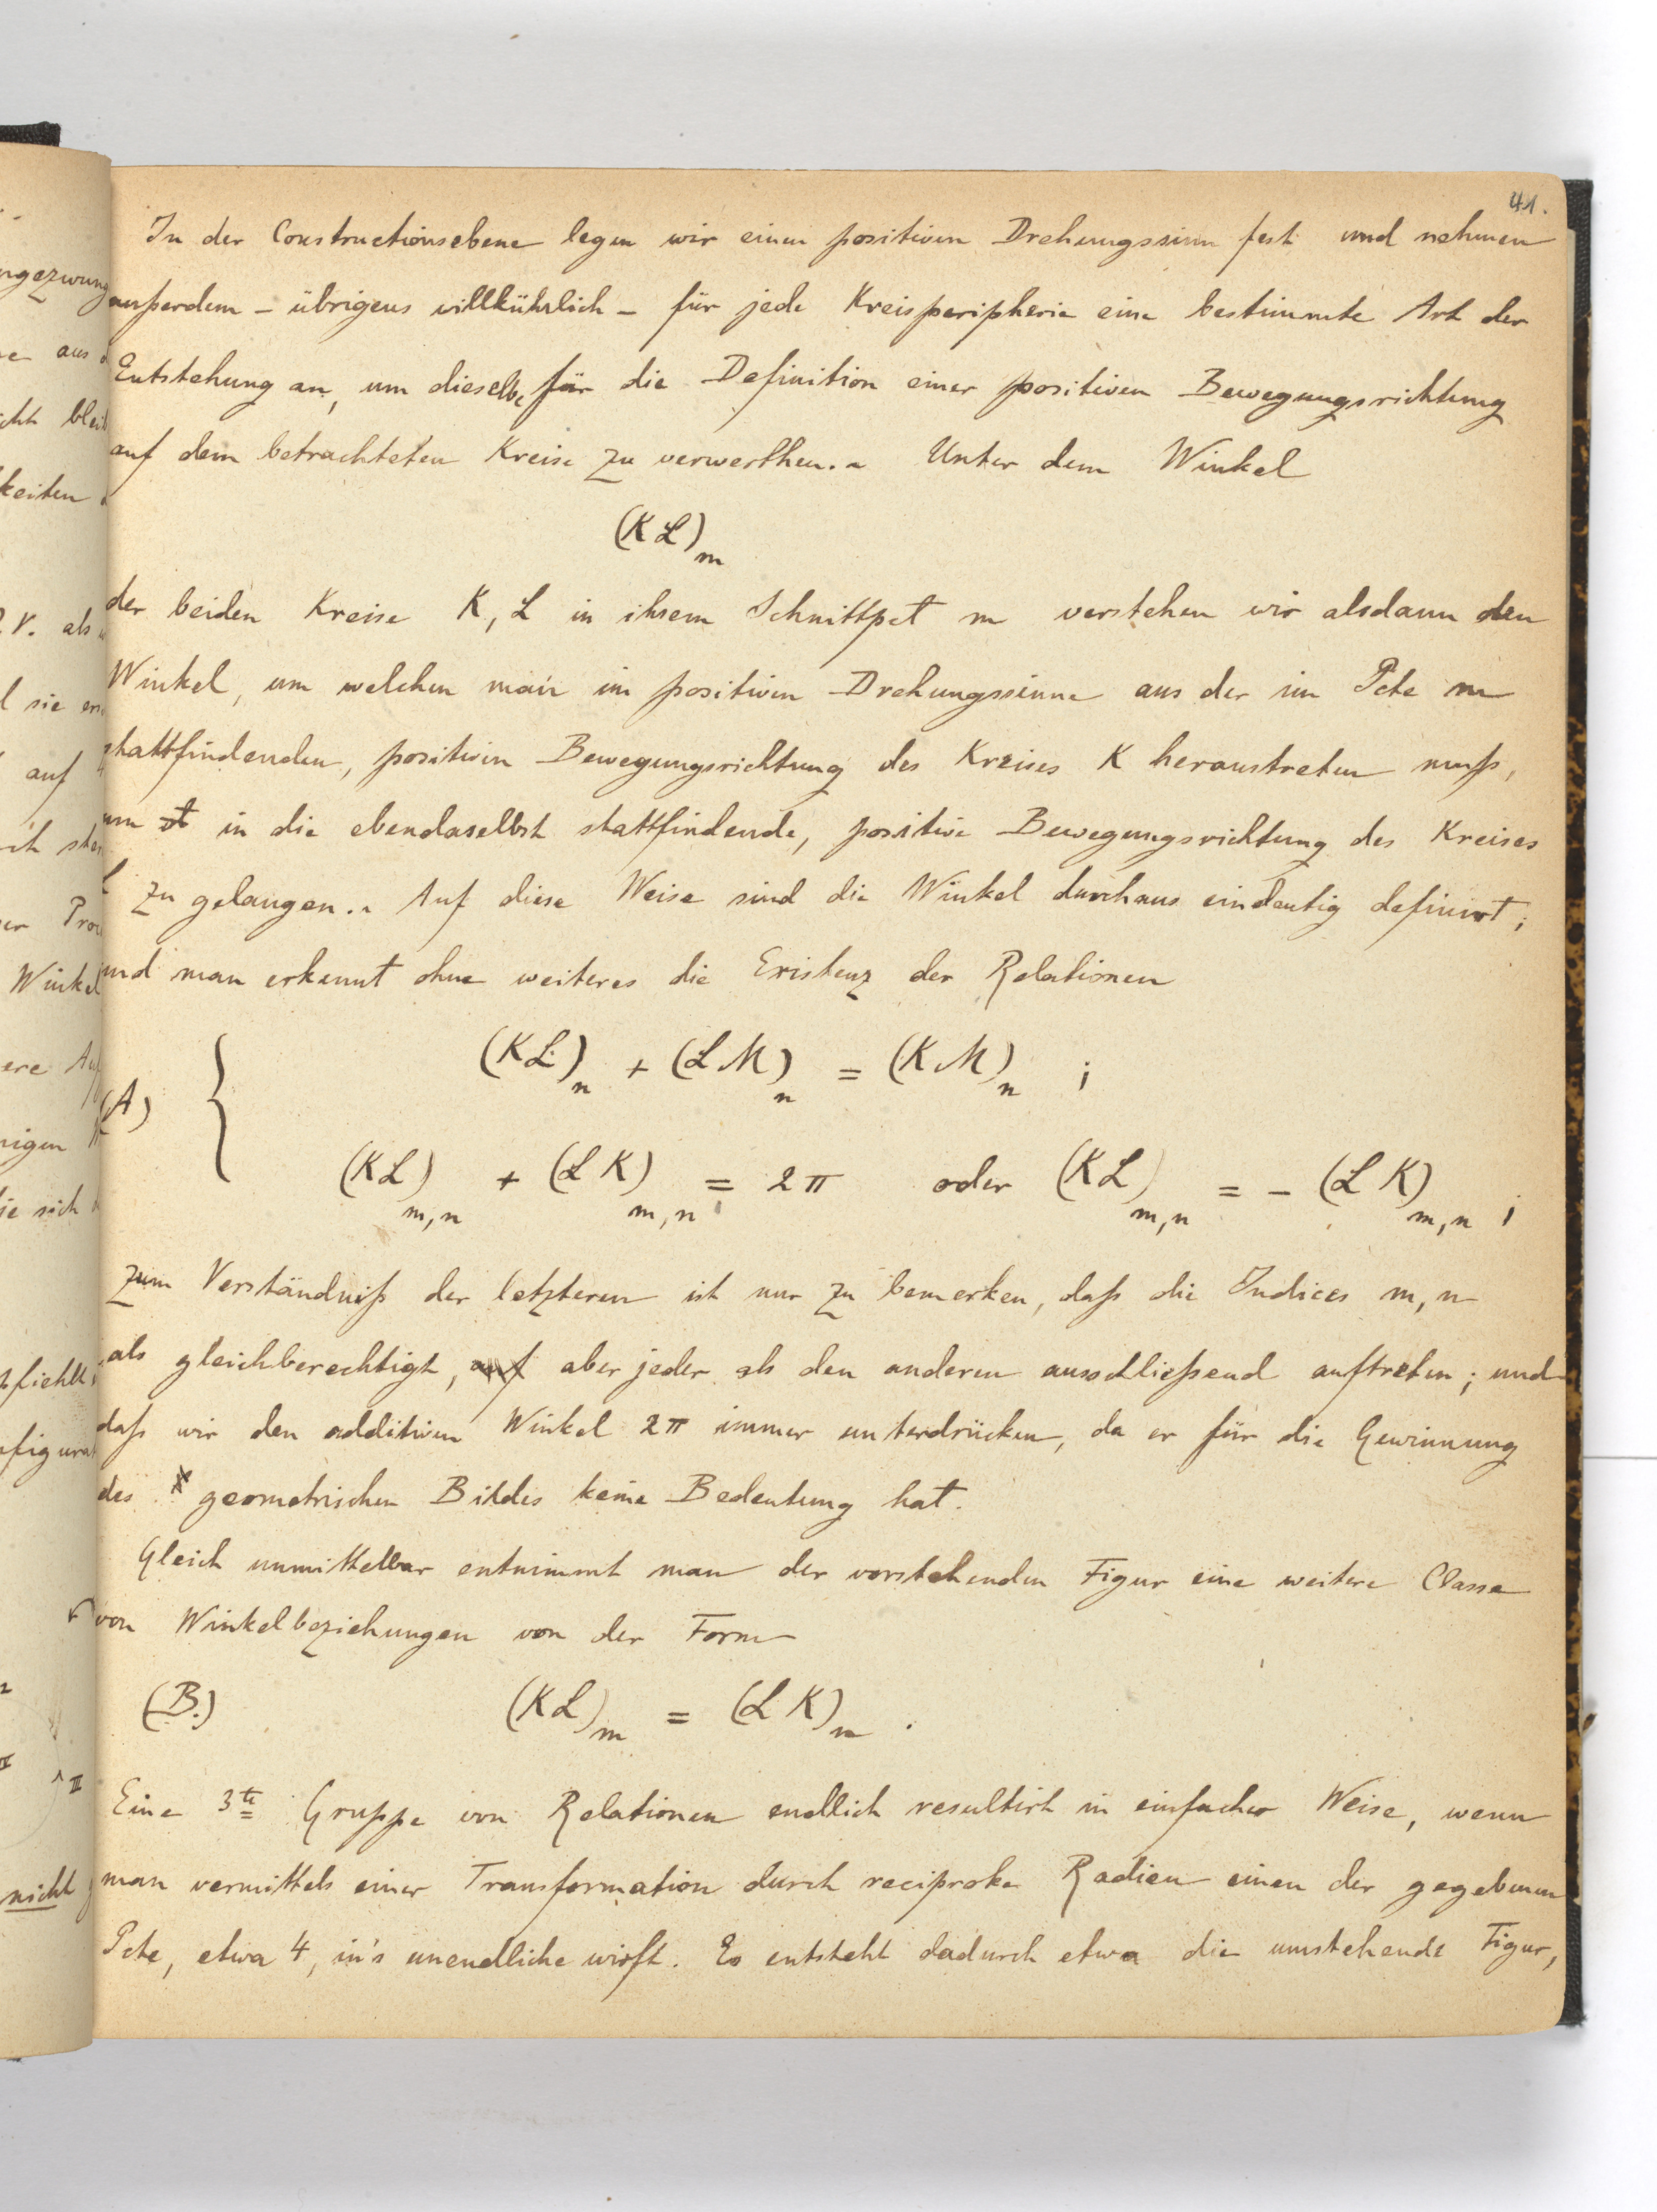 41.
In der Constructionsebene legen wir einen positiven Drehungssinn fest und nehmen
ausserdem – übrigens willkührlich – für jede Kreisperipherie eine bestimmte Art der
Entstehung an, um dieselbe für die Definition einer positiven Bewegungsrichtung
auf dem betrachteten Kreise zu verwerthen.– Unter dem Winkel
(KL)_m
der beiden Kreise K, L in ihrem Schnittpct m verstehen wir alsdann den
Winkel, um welchen man im positiven Drehungssinne aus der im Pcte m
stattfindenden, positiven Bewegungsrichtung des Kreises K heraustreten muß,
um in die ebendaselbst stattfindende, positive Bewegungsrichtung des Kreises
L zu gelangen.– Auf diese Weise sind die Winkel durchaus eindeutig definirt;
und man erkennt ohne weiteres die Existenz der Relationen
(KL)_n + (LM)_n = (KM)_n ;
(A) {
(KL)_m,n + (LK)_m,n = 2π oder (KL)_m,n = – (LK)_m,n ;
zum Verständniß der letzteren ist nur zu bemerken, daß die Indices m, n
als gleichberechtigt, auf aber jeder als den anderen ausschließend auftreten; und
daß wir den additiven Winkel 2π immer unterdrücken, da er für die Gewinnung
des geometrischen Bildes keine Bedeutung hat.
Gleich unmittelbar entnimmt man der vorstehenden Figur eine weitere Classe
von Winkelbeziehungen von der Form
(B.) (KL)_m = (LK)_n .
Eine 3te Gruppe von Relationen endlich resultirt in einfacher Weise, wenn
man vermittels einer Transformation durch reciproke Radien einen der gegebenen
Pcte, etwa 4, in's unendliche wirft. Es entsteht dadurch etwa die umstehende Figur,